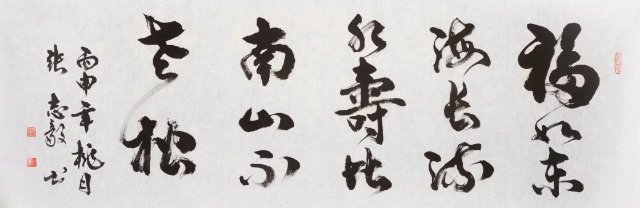 福如东
海长流
水寿比
南山不
老松
丙申年桃月
张志毅书